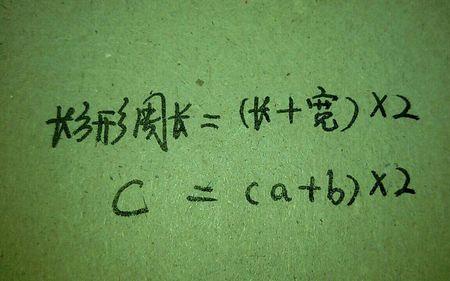 长方形周长=(长+宽)×2
C =(a+b)×2